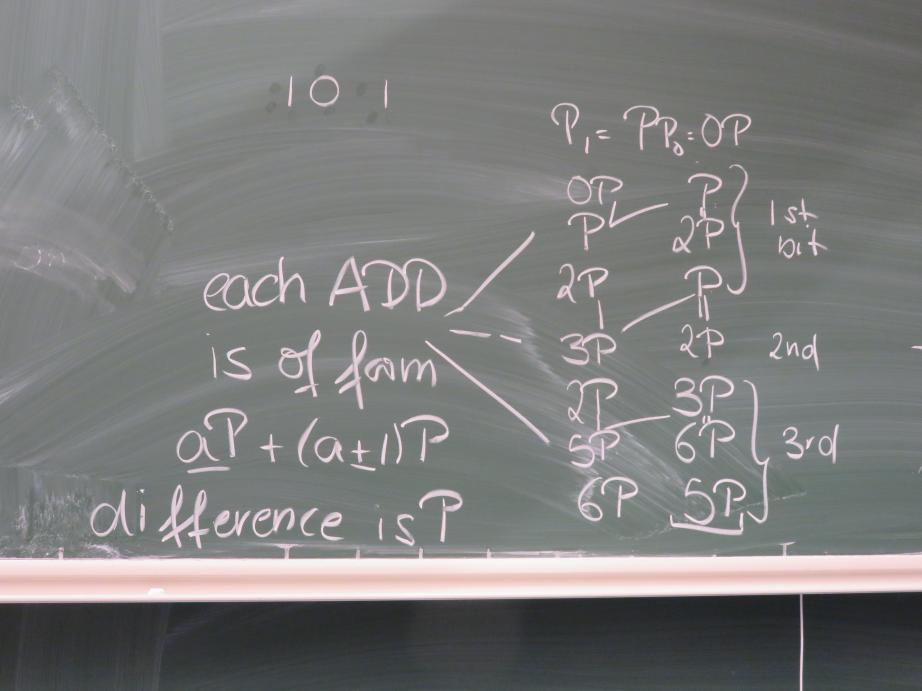 101
P₁=PP₀=0P
0P P
P 2P
1st
bit
2P P
3P 2P
2nd
2P 3P
5P 6P
3rd
6P 5P
each ADD
is of form
aP+(a±1)P
difference is P